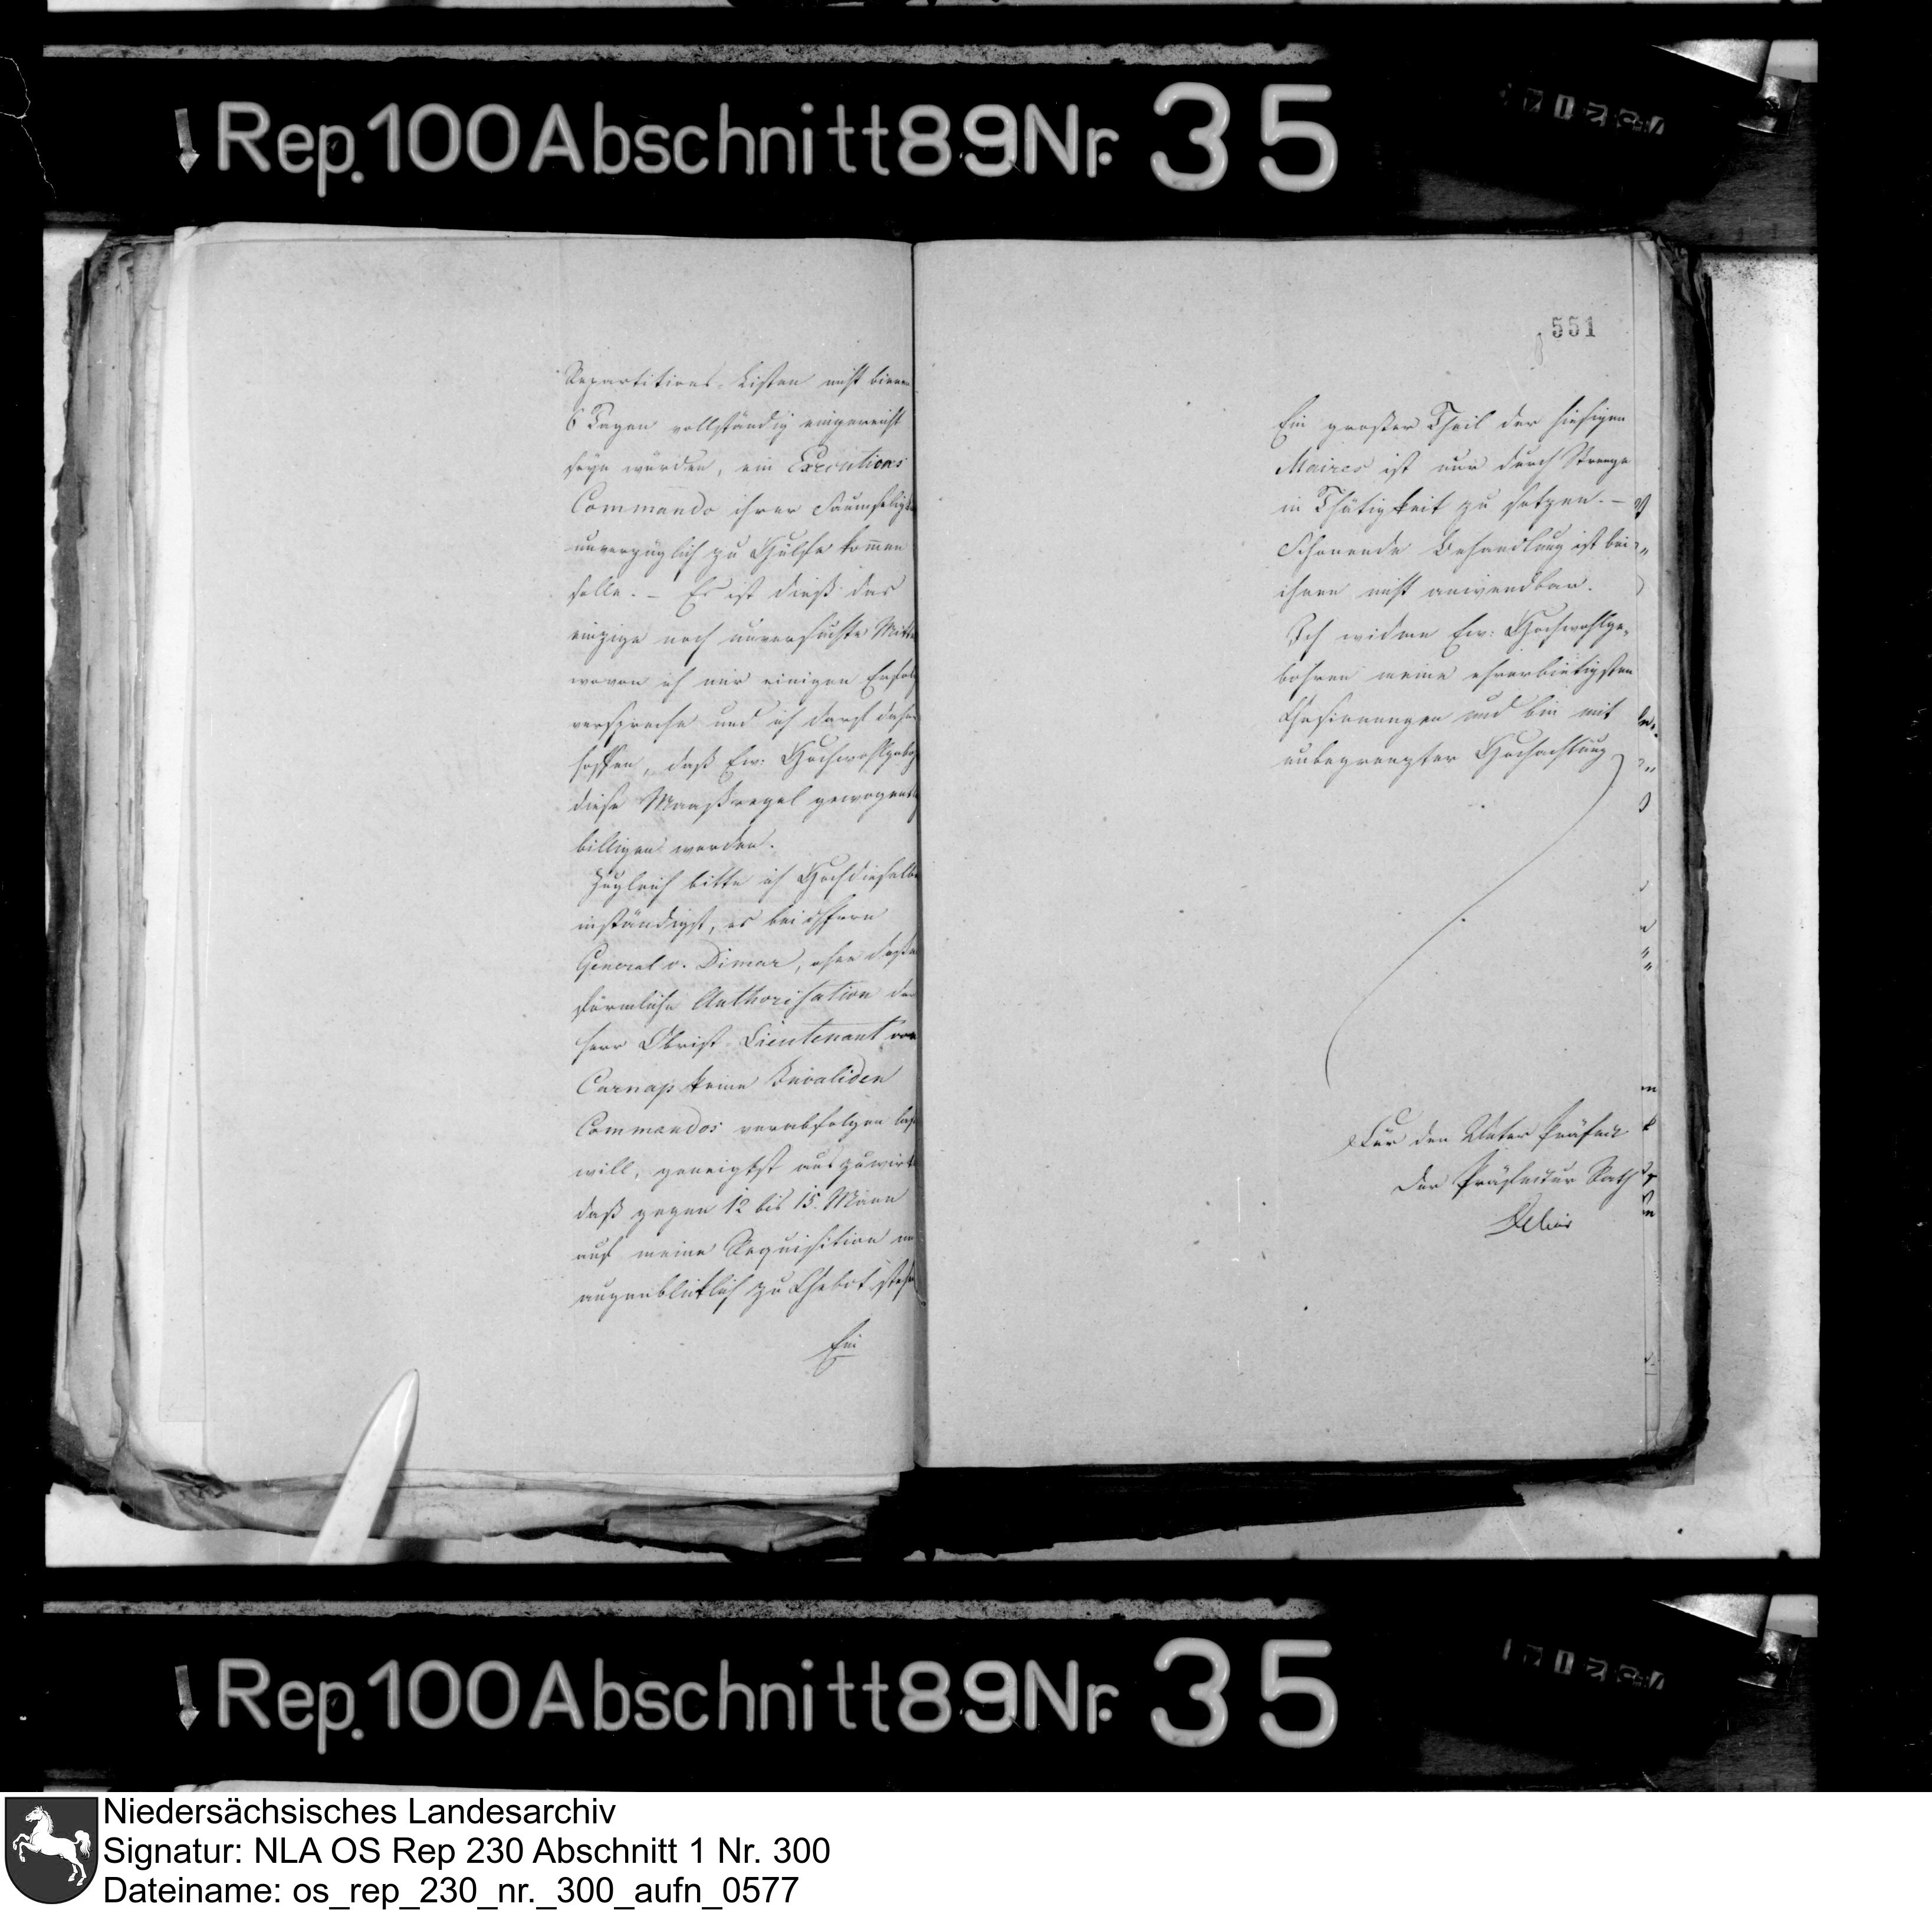 Rep. 100 Abschnitt 89 Nr. 35
Repartitions-Listen nicht binnen
6 Tagen vollständig eingereicht
seyn würden, ein Executions
Commando ihrer Saumseligk
unverzüglich zu Hülfe kommen
solle. – Es ist dieß das
einzige noch unversuchte Mitte
wovon ich mir einigen Erfolg
verspreche und ich darf daher
hoffen, daß Ew: Hochwohlgeb
diese Maaßregel gewogent
billigen werden.
Zugleich bitte ich Hochdieselbe
inständigst, es bei
General v. Dimar, ohne dessen
förmliche Authorisation der
Herr Obrist Lieutenant von
Carnap keine Invaliden
Commandos verabfolgen lass
will, geneigtst auszuwirk
daß gegen 12 bis 15. Mann
auf meine Requisition
augenblicklich zu Gebot stehe
Ein
551
Ein großer Theil der hiesigen
Maires ist nur durch Strenge
in Thätigkeit zu setzen. –
Schonende Behandlung ist bei
ihnen nicht anwendbar.
Ich widme Ew: Hochwohlge-
bohren meine ehrerbietigsten
Gesinnungen und bin mit
unbegrenzter Hochachtung
Für den Unter Präfect
Der Präfectur Rath
Delius
Rep. 100 Abschnitt 89 Nr. 35
Niedersächsisches Landesarchiv
Signatur: NLA OS Rep 230 Abschnitt 1 Nr. 300
Dateiname: os_rep_230_nr._300_aufn_0577